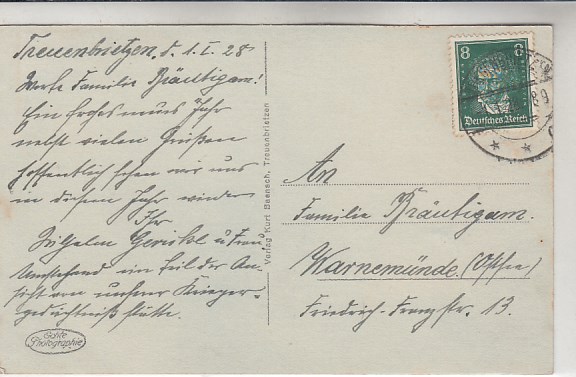 Treuenbrietzen, d. 1. I. 28
Werte Familie Bräutigam!
Ein frohes neues Jahr
nebst vielen Grüßen
Hoffentlich sehen wir uns
in diesem Jahr wieder
Ihr
Wilhelm u Frau
Umstehend ein Teil der An-
sicht von unserer Krieger-
gedächtnißstätte.
Echte
Photographie
Verlag Kurt Baensch, Treuenbrietzen
8 8
Deutsches Reich
An
Familie Bräutigam.
Warnemünde. (Ostsee)
Friedrich-Franzstr. 13.